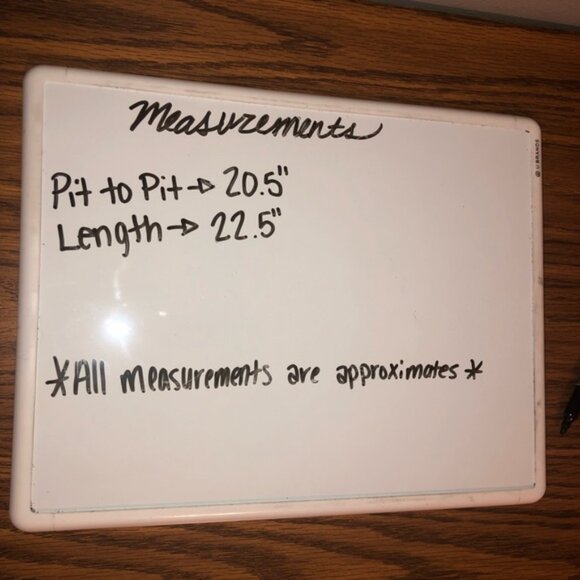 Measurements
Pit to Pit → 20.5"
Length → 22.5"
*All measurements are approximates *
U BRANDS